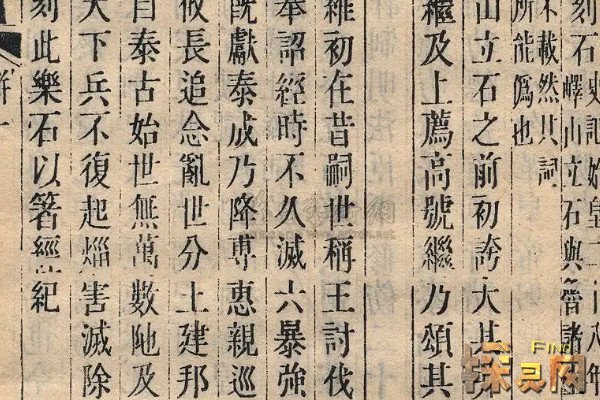 史記始皇二十八年
刻石嶧山立石與魯諸
不載然其詞
所能僞也
山立石之前初誇大其
繼及上薦高號繼乃頌其
維初在昔嗣世稱王討伐
奉詔經時不久滅六暴強
旣獻泰成乃降專惠親巡
攸長追念亂世分土建邦
自泰古始世無萬數阤及
天下兵不復起害滅除
刻此樂石以箸經紀
FIND
探灵网